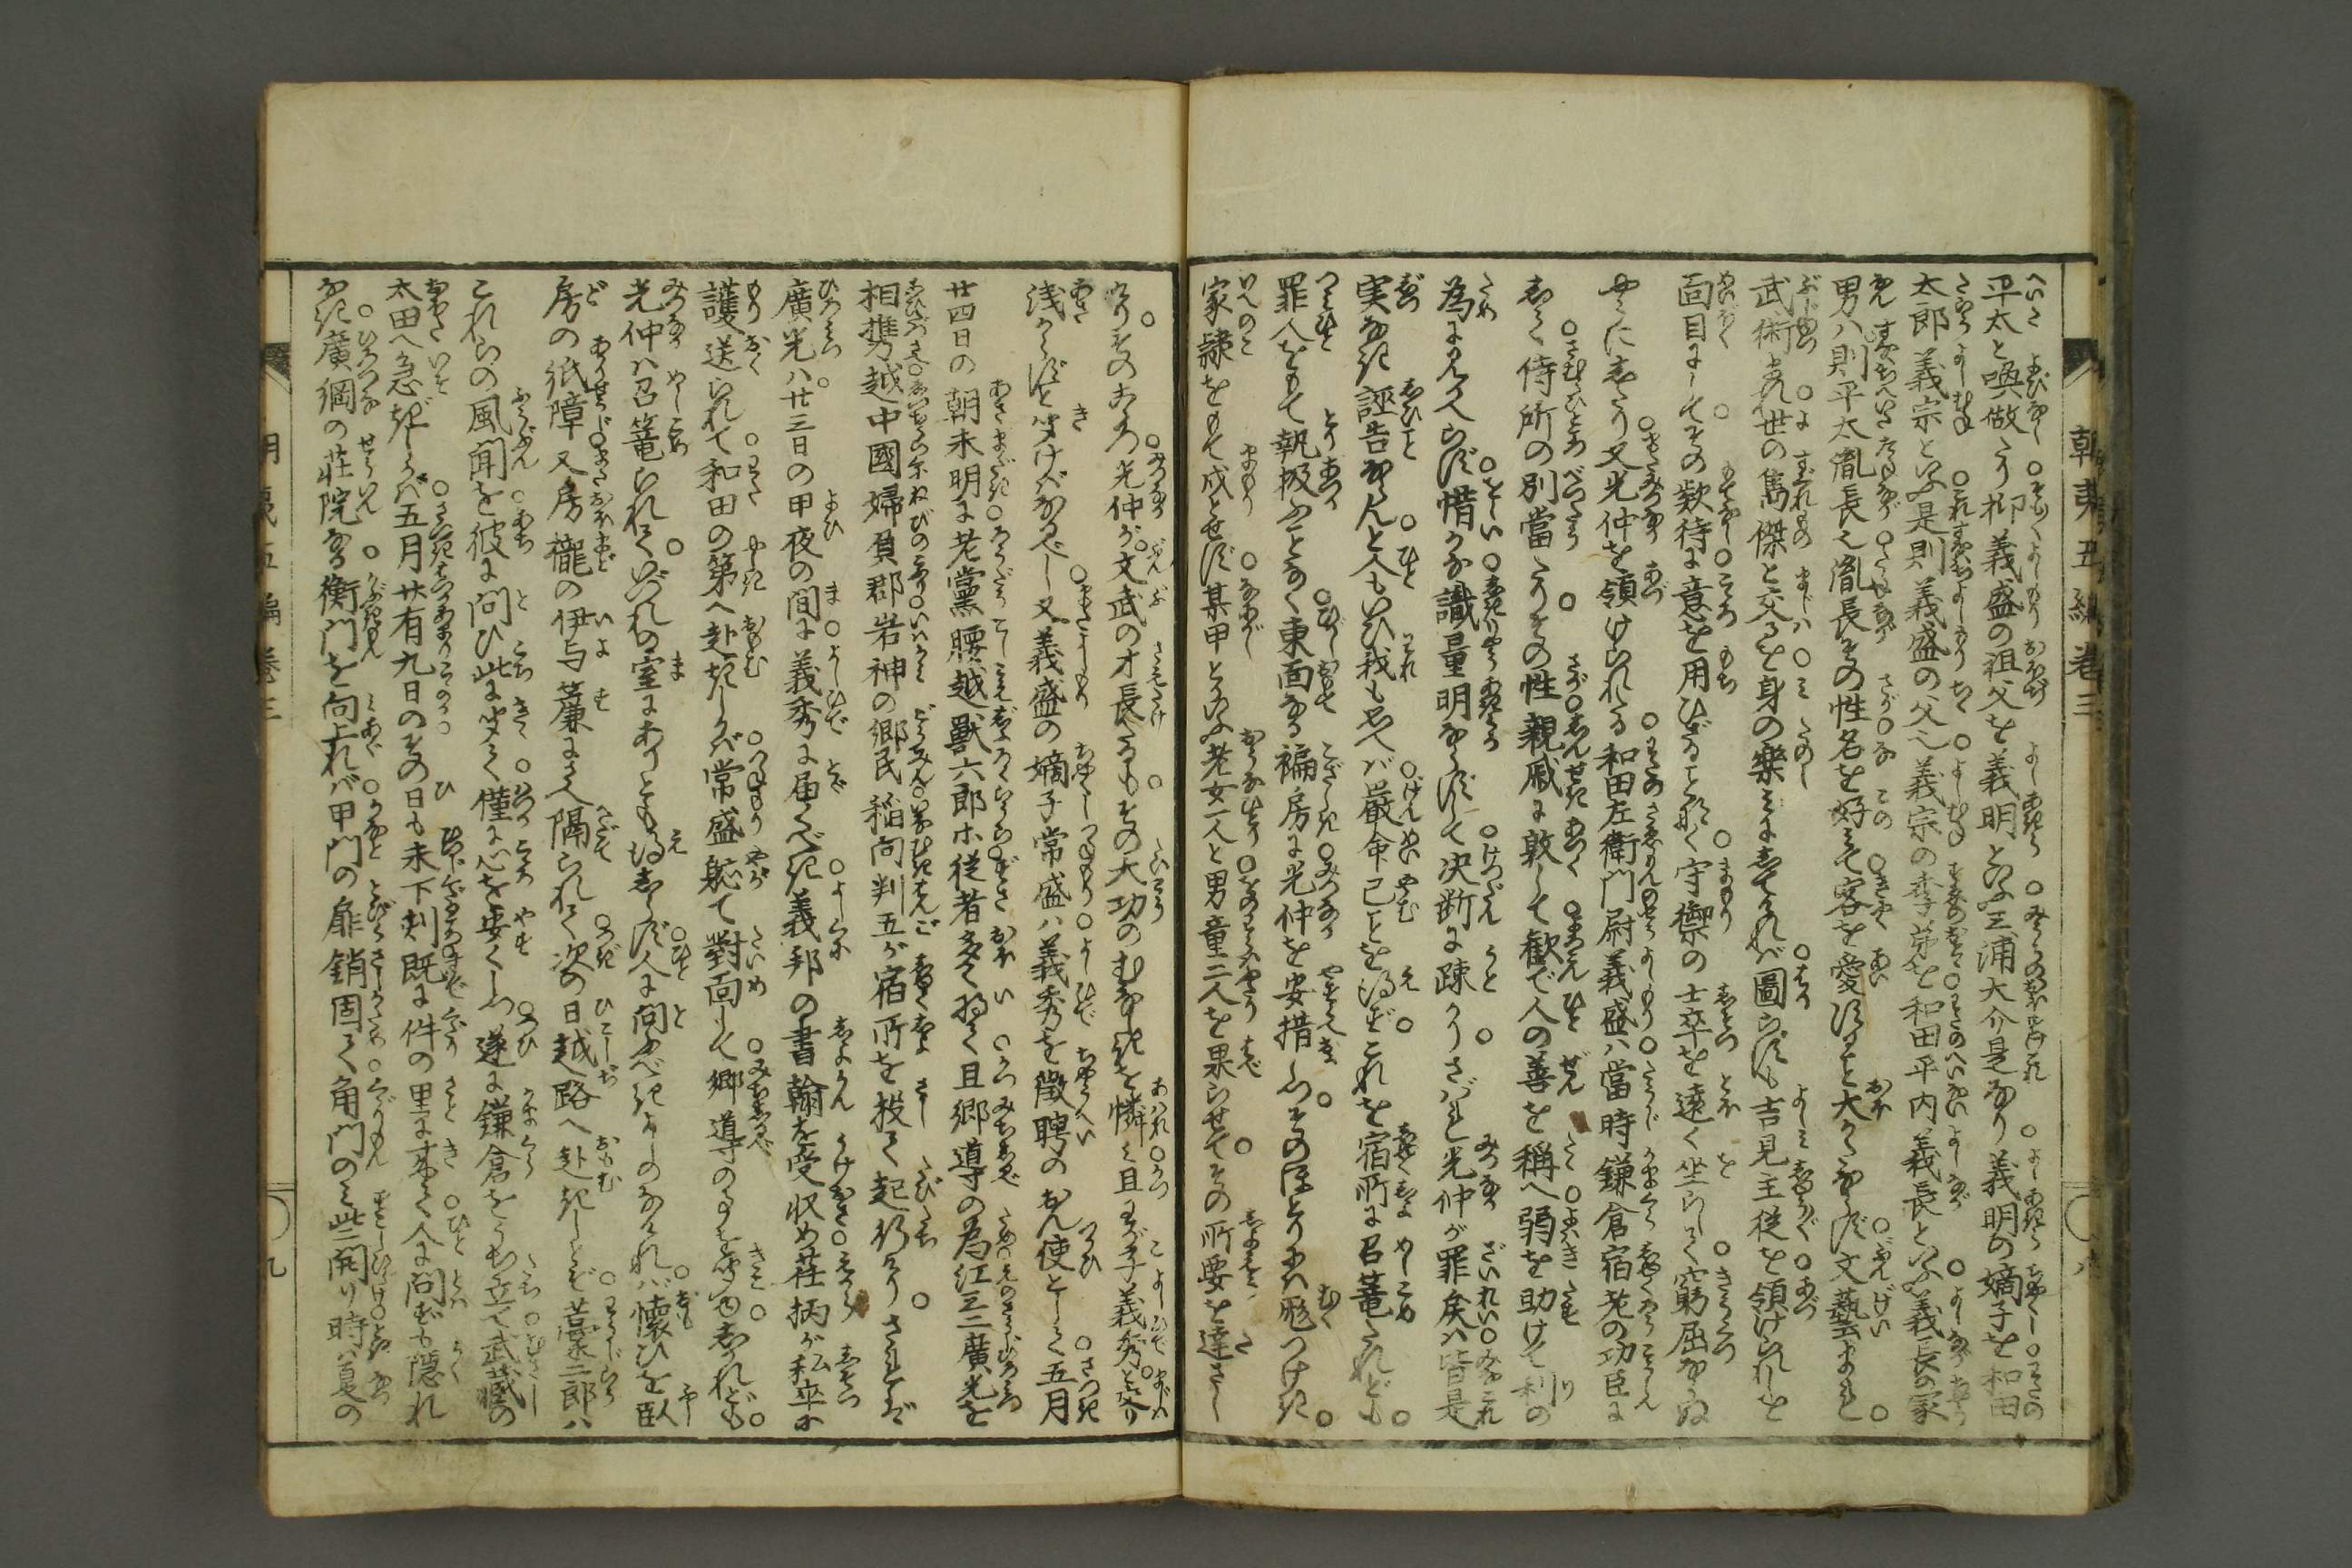 平太と喚做たり抑義盛の祖父を義明といふ三浦大介是なり義明の嫡子を和田
太郎義宗といふ是則義盛の父也義宗の季弟を和田平内義長といふ義長の家
男ハ則平太胤長也胤長その性名を好みて客を愛すること大かたならず文藝まれ
武術まれ世の雋傑と交るを身の樂みにしてけれバ圖らずも吉見主従を領けられしを
面目にしてその欵待に意を用ひざることなく守禦の士卒を遠く坐らして窮屈ならぬ
やうにしたり又光仲を領けられたる和田左衛門尉義盛ハ當時鎌倉宿老の功臣に
して侍所の別當たりその性親戚に敦して歓で人の善を稱へ弱を助けて利の
為にかへらず惜かな識量明ならずして决断に疎かりさバれ光仲が罪戻ハ皆是
実なき誣告ならんと人もいひ我も思へバ嚴命已ことを得ずこれを宿所に召篭たれども
罪人をもて執扱ふことなく東面なる褊房に光仲を安措しつそのほとりにハ彪つけき
家隷をもて戍らせず某甲といふ老女一人と男童二人を果らせてその所要を達さし
けりそのころ光仲が文武の才長たるもその大功のむなしきを憐み且わが子義秀と交り
浅からずと聞けバなるべし又義盛の嫡子常盛ハ義秀を徴聘のおん使として五月
廿四日の朝未明に老黨腰越獣六郎ホ従者多く将て且郷導の為江三二廣光を
相携越中國婦負郡岩神の郷民稲向判五が宿所を投て起行けりされバ
廣光ハ廿三日の甲夜の間に義秀に届くべき義邦の書翰を受収め荏柄が私卒に
護送られて和田の第へ赴きしかバ常盛軈て對面して郷導の事を聞るしかれども
光仲ハ召篭られていづれの室にありとも得しらず人に問ふべきよしのなけれバ懐ひを臥
房の紙障又房櫳の伊与簾にさへ隔られて次の日越路へ赴きしとぞ藁二郎ハ
これらの風聞を彼に問ひ此に聞て僅に心を安くしつ遂に鎌倉をうち立て武藏の
太田へ急ぎしが五月廿有九日のその日も未下刻既に件の里に来て人に問ずも隠れ
なき廣綱の荘院なる衡門を向上れバ甲門の扉銷固て角門のみ些開り時ハ夏の
朝夷五編巻三
八
朝夷五編巻三
九